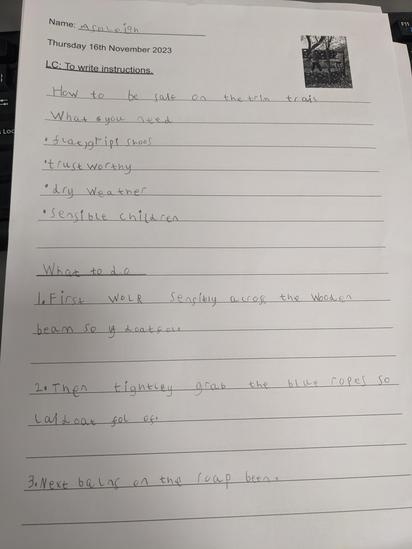 Name: Ashleigh
Thursday 16th November 2023
LC: To write instructions.
How to be safe on the trim trail
What you need
• shoos
• trustworthy
• dry weather
• sensible children
What to do
1. First wolk sensibly across the wooden
beam so
2. Then tightley grab the blue ropes so
fol of.
3. Next on the